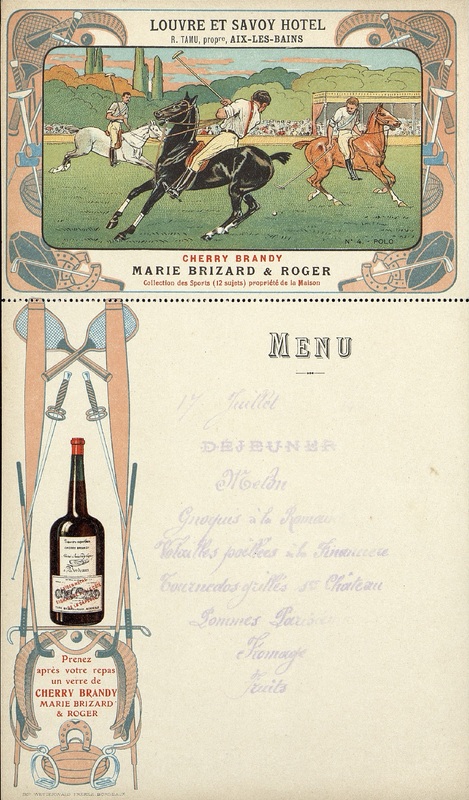 LOUVRE ET SAVOY HOTEL
R. TAMU, propre, AIX-LES-BAINS
Nº 4. - POLO
CHERRY BRANDY
MARIE BRIZARD & ROGER
Collection des Sports (12 sujets) propriété de la Maison
MENU
17 Juillet
DÉJEUNER
Melon
à la
Volailles poêlées à la Financière
Tournedos grillés Château
Pommes
Fromage
Fruits
Prenez
après votre repas
un verre de
CHERRY BRANDY
MARIE BRIZARD
& ROGER